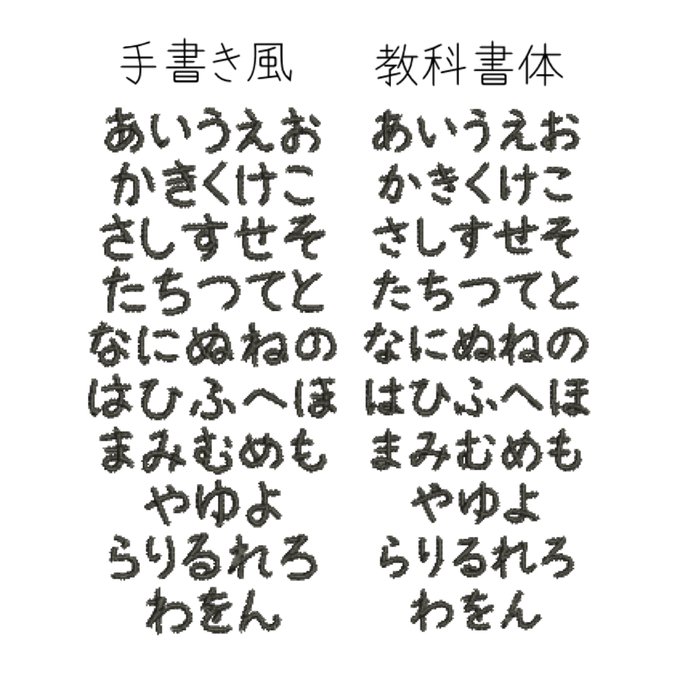 手書き風
あいうえお
かきくけこ
さしすせそ
たちつてと
なにぬねの
はひふへほ
まみむめも
やゆよ
らりるれろ
わをん
教科書体
あいうえお
かきくけこ
さしすせそ
たちつてと
なにぬねの
はひふへほ
まみむめも
やゆよ
らりるれろ
わをん